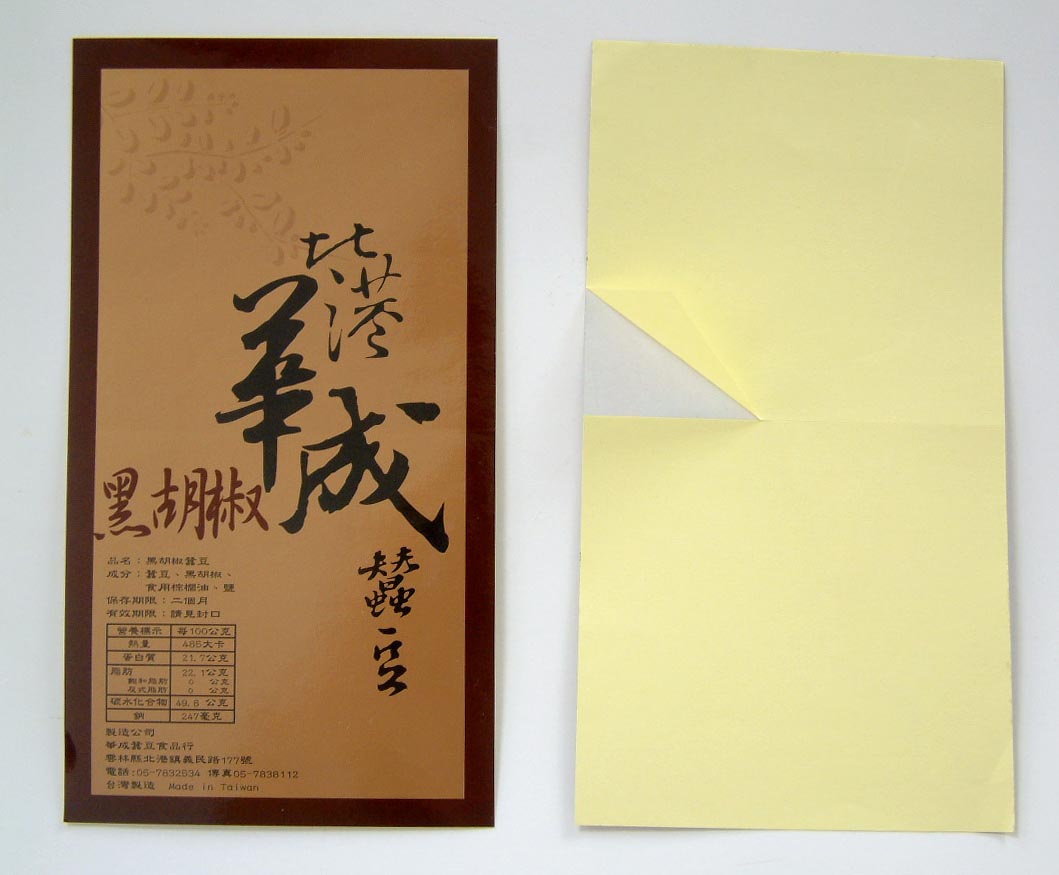 北港
華成
黑胡椒
蠶豆
品名：黑胡椒蠶豆
成分：蠶豆、黑胡椒、
食用棕櫚油、鹽
保存期限：二個月
有效期限：請見封口
營養標示 每100公克
熱量 485大卡
蛋白質 21.7公克
脂肪 22.1公克
飽和脂肪 0 公克
反式脂肪 0 公克
碳水化合物 49.6 公克
鈉 247毫克
製造公司
華成蠶豆食品行
雲林縣北港鎮義民路177號
電話:05-7832534 傳真05-7838112
台灣製造 Made in Taiwan